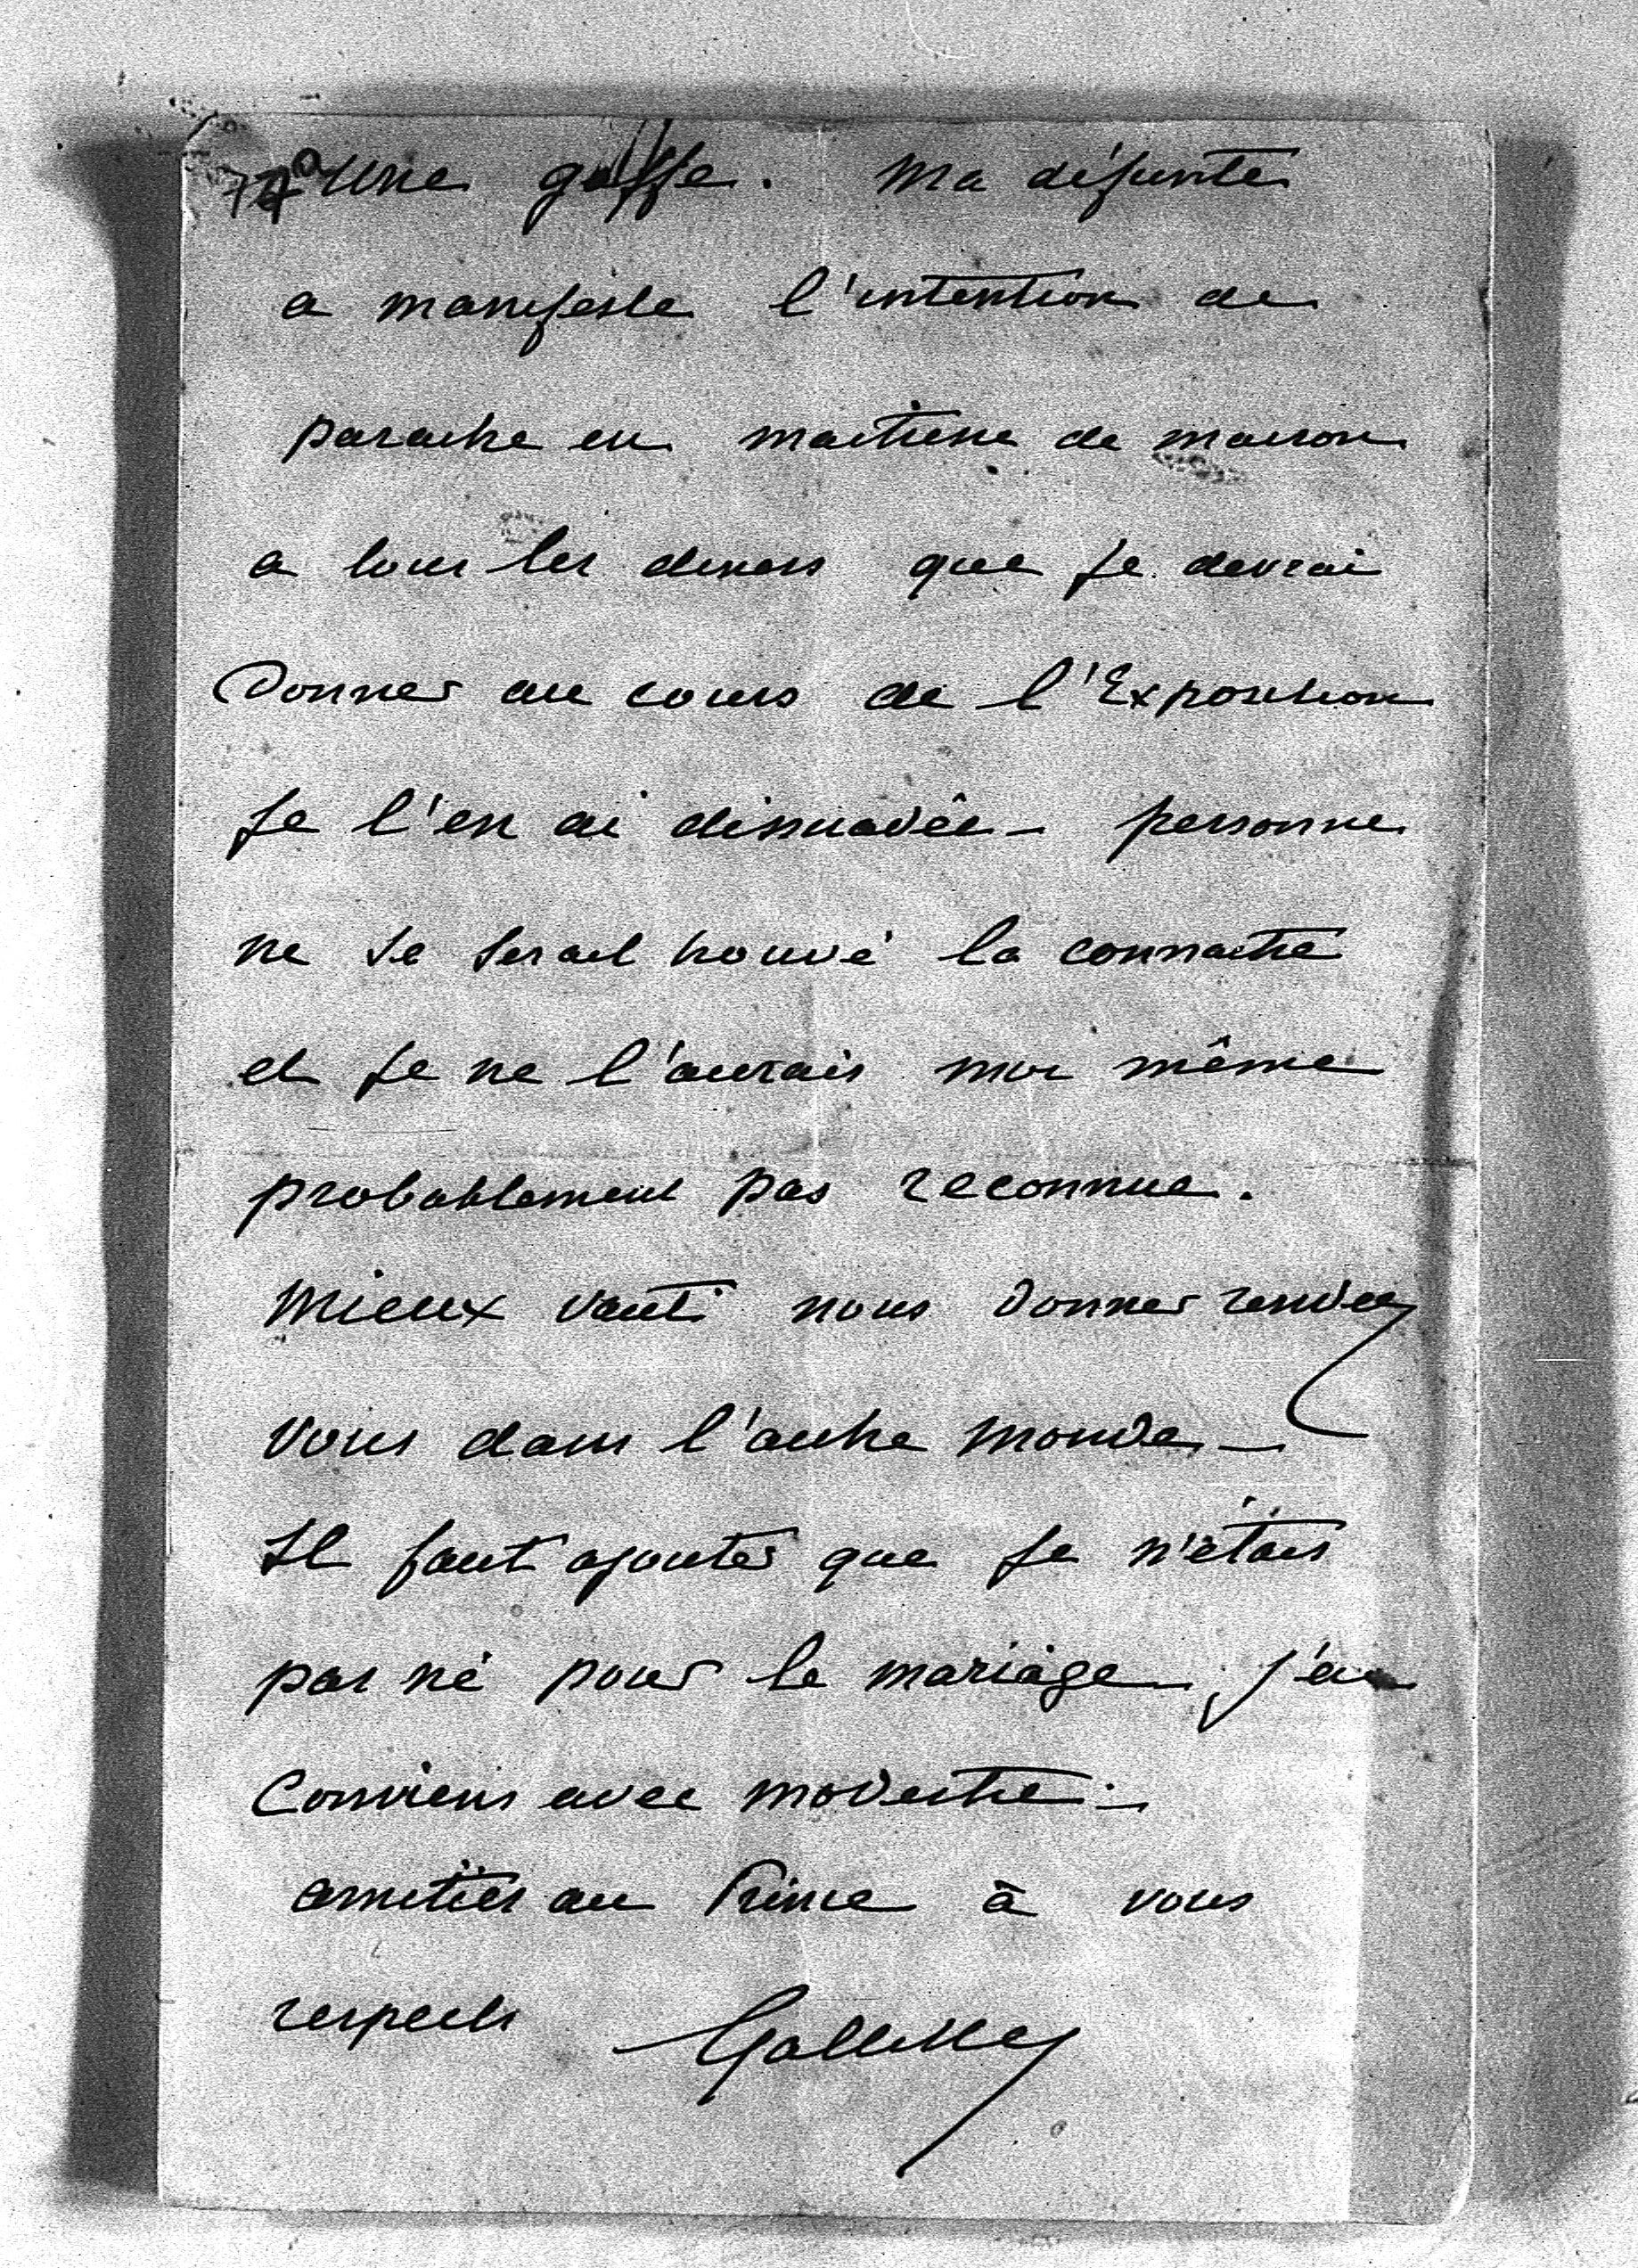 Une gaffe. Ma défunte
a manifesté l'intention de
paraitre en maitresse de maison
a tous les diners que je devrai
Donner au cours de l'Exposition
Je l'en ai dissuadée - personne
ne se serait trouvé la connaitre
et je ne l'aurais moi même
probablement pas reconnue.
Mieux vaut nous donner rendez
vous dans l'autre monde -
Il faut ajouter que je n'étais
pas né pour le mariage j'en
Conviens avec modestie -
amitiés au Prince à vous
respects Galliffet